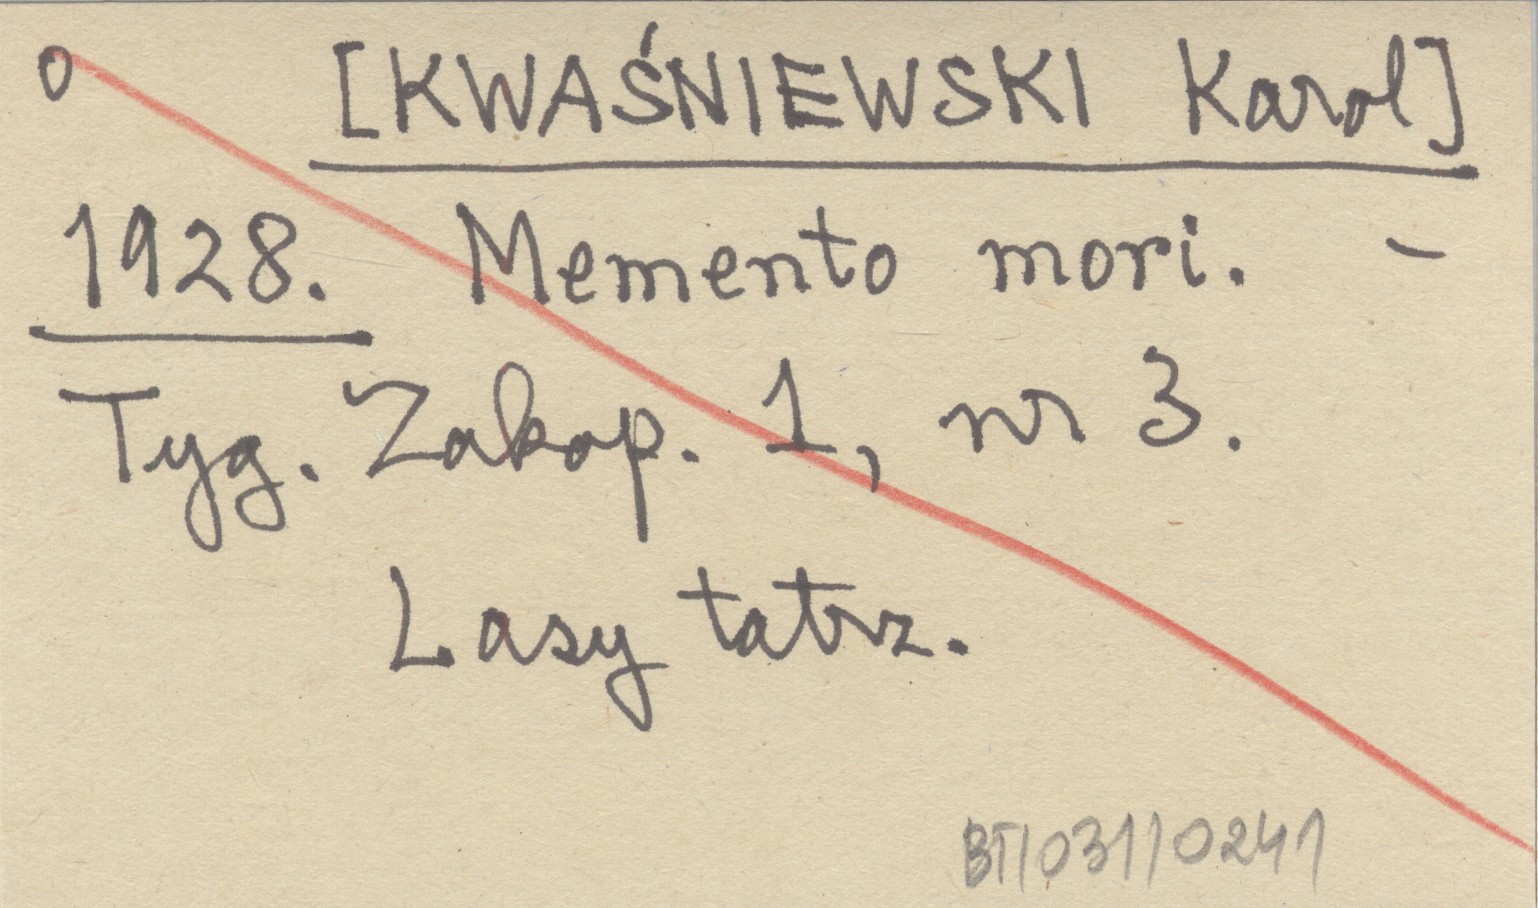 0 [KWAŚNIEWSKI Karol]
1928. Memento mori. -
Tyg. Zakop. 1, nr 3.
Lasy tatrz.
BT/031/0241